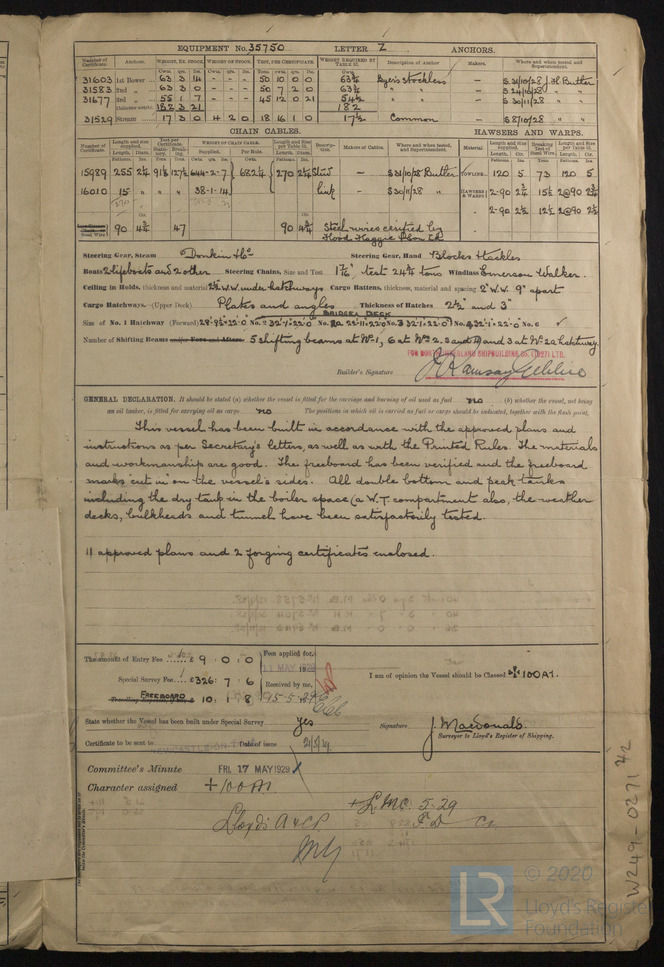 EQUIPMENT No. 35750 LETTER Z ANCHORS.
Number of Certificate. Anchors. WEIGHT, EX. STOCK. WEIGHT OF STOCK. TEST, PER CERTIFICATE. WEIGHT REQUIRED BY TABLE 31. Description of Anchor Makers. Where and when tested and Superintendent.
31603 1st Bower 63 3 14 - - - 50 10 0 0 63¾ Byers Stockless - S 31/10/28 J.H. Butler
31583 2nd " 63 3 0 - - - 50 7 2 0 63¾ " " - S 24/10/28 "
31677 3rd " 55 1 7 - - - 45 12 0 21 54½ " " - S 30/11/28 "
182 3 21 182
31529 Stream 17 3 0 4 2 0 18 16 1 0 17½ Common - S 8/10/28 "
CHAIN CABLES. HAWSERS AND WARPS.
Number of Certificate. Length and size supplied. Test per Certificate. WEIGHT OF CHAIN CABLE. Length and size per Table 31. Description. Makers of Cables. Where and when tested, and Superintendent. Material Length and size supplied. Breaking Test of Steel Wire. Length and size per Table 31.
15989 255 2¼ 644-2-7 682¼ 270 2¼ Stud - S 31/10/28 Butler TOWLINE 120 5 73 120 5
16010 15 " " " 38-1-14 Link - S 30/11/28 " HAWSERS & WARPS 2-90 2¾ 15½ 2@90 2¾
2-90 2½ 12½ 2@90 2½
90 4¾ 47 90 4¾ Steel wires certified by
Hood Haggie & Son Ltd
Steering Gear, Steam Donkin & Co Steering Gear, Hand Blocks & tackles
Boats 2 lifeboats and 2 other Steering Chains, Size and Test 1⅞", test 24¾ tons Windlass Emerson Walker.
Ceiling in Holds, thickness and material 2½" W.W. under hatchways Cargo Battens, thickness, material and spacing 2" W.W. 9" apart
Cargo Hatchways.—(Upper Deck) Plates and angles Thickness of Hatches 2½" and 3"
BRIDGE DECK
Size of No. 1 Hatchway (Forward)
Number of Shifting Beams 5 shifting beams at No. 1, 6 at Nos. 2, 3 and 4 and 3 at No. 2A hatchway.
FOR NORTHUMBERLAND SHIPBUILDING Co. (1927) LTD.
Builder's Signature
GENERAL DECLARATION. It should be stated (a) whether the vessel is fitted for the carriage and burning of oil used as fuel no (b) whether the vessel, not being
an oil tanker, is fitted for carrying oil as cargo no The positions in which oil is carried as fuel or cargo should be indicated, together with the flash point.
This vessel has been built in accordance with the approved plans and
instructions as per Secretary's letters, as well as with the Printed Rules. The materials
and workmanship are good. The freeboard has been verified and the freeboard
marks "cut in" on the vessel's sides. All double bottom and peak tanks
including the dry tank in the boiler space (a W.T. compartment also, the weather
decks, bulkheads and tunnel have been satisfactorily tested.
11 approved plans and 2 forging certificates enclosed.
The amount of Entry Fee £ 9 : 0 : 0 Fee applied for,
11 MAY 1929
Special Survey Fee £ 326 : 7 : 6 Received by me, I am of opinion the Vessel should be Classed ✠100A1.
FREEBOARD £ 10 : 1 : 8
State whether the Vessel has been built under Special Survey Yes Signature J. Macdonald.
Surveyor to Lloyd's Register of Shipping.
Certificate to be sent to NEWCASTLE-ON-TYNE Date of issue 21/5/29
Committee's Minute FRI. 17 MAY 1929
Character assigned +100A1
+LMC 5.29
Lloyds A & CP. F.D. CL
W249-0271 ½
© 2020
LR Lloyd's Register
Foundation